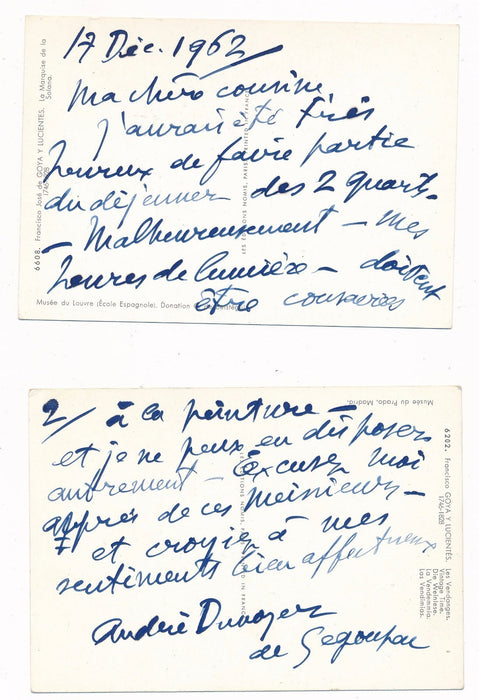 17 Déc. 1962
Ma chère cousine
j'aurais été très
heureux de faire partie
du déjeuner des 2 quarts.
– Malheureusement – mes
heures de lumière – doivent
être consacrées
6608. Francisco José de GOYA Y LUCIENTES. La Marquise de la
1746-1828 Solana.
LES ÉDITIONS NOMIS, PARIS PRINTED IN FRANCE
Musée du Louvre (École Espagnole). Donation
2/ à la peinture –
et je ne peux en disposer
autrement – Excusez moi
auprès de ces messieurs –
et croyez à mes
sentiments bien affectueux
André Dunoyer
de Segonzac
Musée du Prado, Madrid.
6202. Francisco GOYA Y LUCIENTES. Les Vendanges.
1746-1828 Vintage Time.
Die Weinlese.
La Vendemmia.
Las Vendimias.